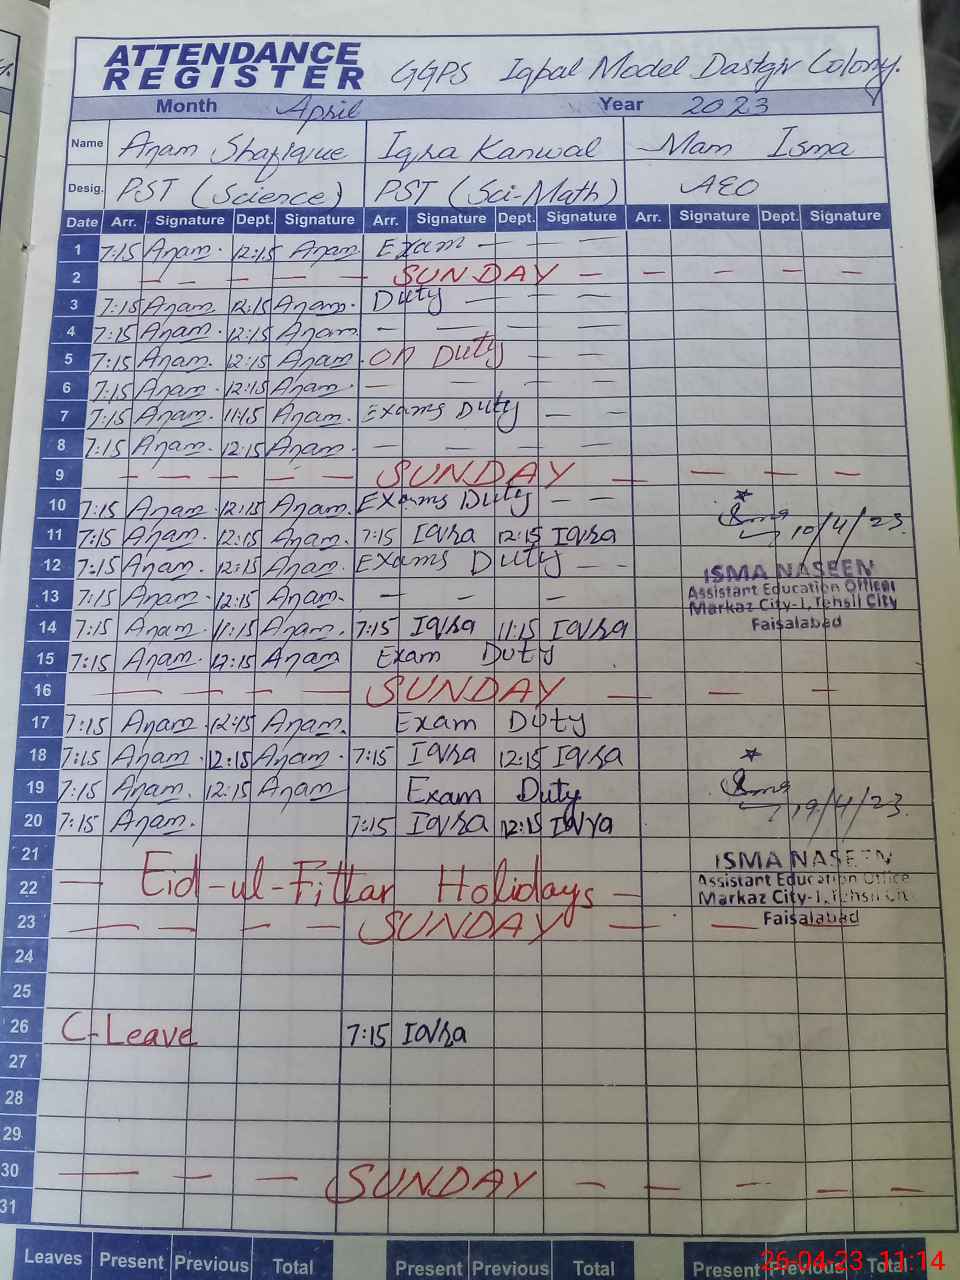 ATTENDANCE
REGISTER GGPS Iqbal Model Dastgir Colony.
Month April Year 2023
Name Anam Shafique Iqra Kanwal Mam Isma
Desig. PST (Science) PST (Sci-Math) AEO
Date Arr. Signature Dept. Signature Arr. Signature Dept. Signature Arr. Signature Dept. Signature
1 7:15 Anam. 12:15 Anam Exam — — —
2 — — — — — SUNDAY — — — — —
3 7:15 Anam 12:15 Anam. Duty — — —
4 7:15 Anam. 12:15 Anam — — — —
5 7:15 Anam. 12:15 Anam. on Duty — —
6 7:15 Anam. 12:15 Anam. — — — —
7 7:15 Anam. 11:15 Anam. Exams Duty — —
8 7:15 Anam. 12:15 Anam. — — — —
9 — — — — — SUNDAY — — — —
10 7:15 Anam. 12:15 Anam. Exams Duty — —
11 7:15 Anam. 12:15 Anam. 7:15 Iqra 12:15 Iqra 10/4/23.
12 7:15 Anam. 12:15 Anam. Exams Duty — —
ISMA NASEEN
13 7:15 Anam. 12:15 Anam. — — — —
Assistant Education Officer
Markaz City-I, Tehsil City
14 7:15 Anam. 11:15 Anam. 7:15 Iqra 11:15 Iqra
Faisalabad
15 7:15 Anam. 12:15 Anam Exam Duty
16 — — — — SUNDAY — — —
17 7:15 Anam. 12:15 Anam. Exam Duty
18 7:15 Anam. 12:15 Anam. 7:15 Iqra 12:15 Iqra
19 7:15 Anam. 12:15 Anam Exam Duty
20 7:15 Anam. 7:15 Iqra 12:15 Iqra 19/4/23.
21
ISMA NASEEN
22 — Eid-ul-Fittar Holidays —
Assistant Education Office
Markaz City-I, Tehsil
23 — — — — SUNDAY — —
Faisalabad
24
25
26 C-Leave 7:15 Iqra
27
28
29
30 — — — SUNDAY — — — — —
31
Leaves Present Previous Total Present Previous Total Present Previous Total
26-04-23 11:14